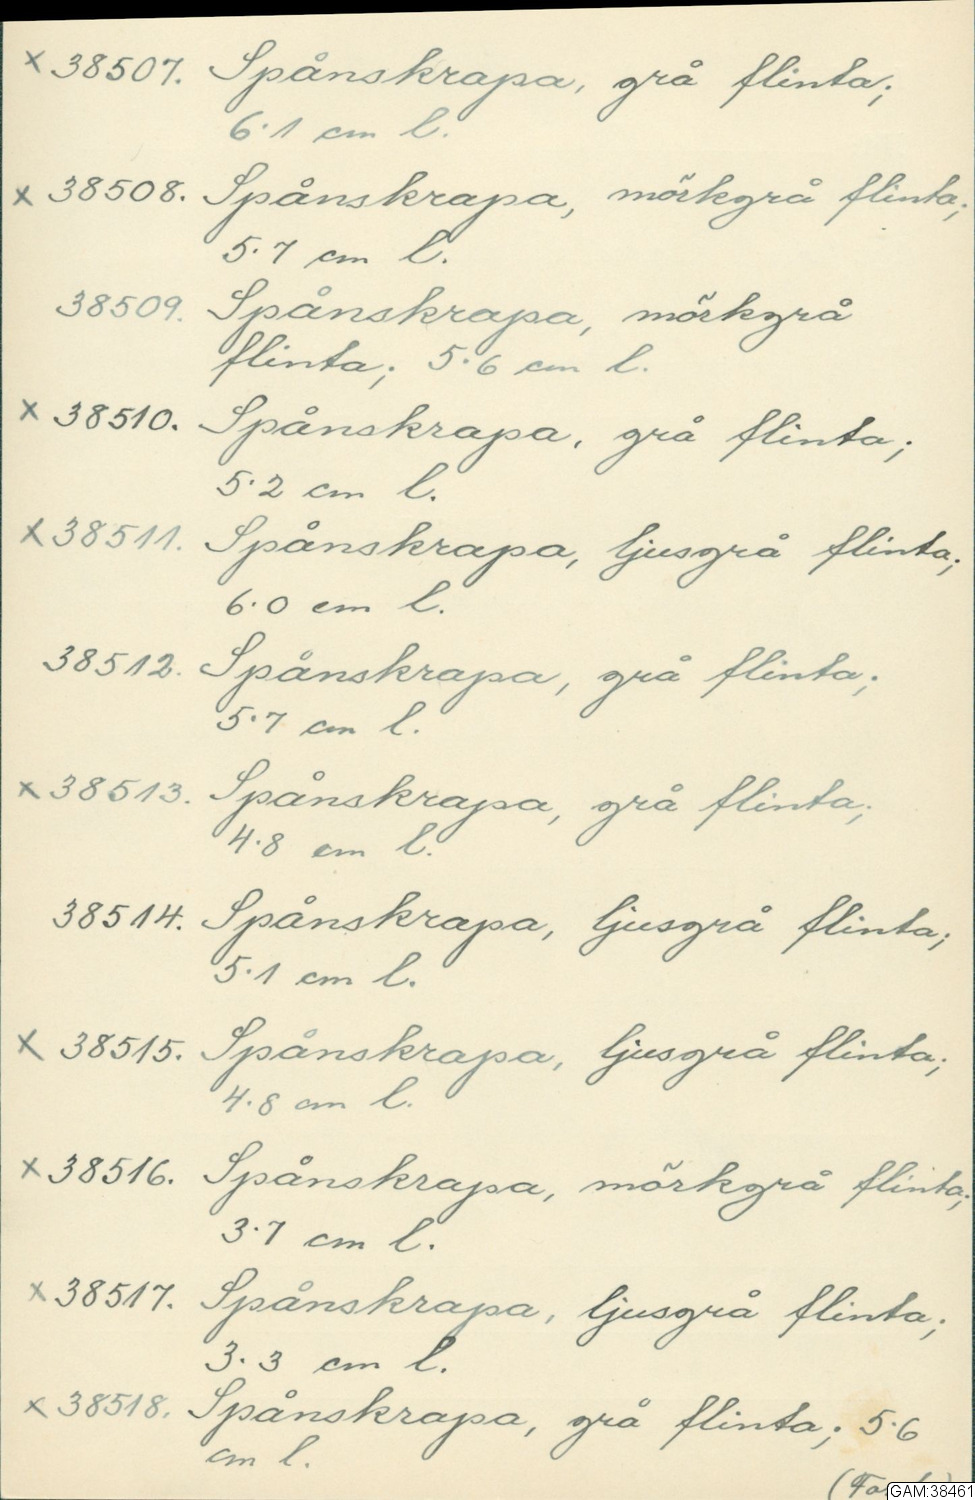 x 38507. Spånskrapa, grå flinta;
6.1 cm l.
x 38508. Spånskrapa, mörkgrå flinta;
5.7 cm l.
38509. Spånskrapa, mörkgrå
flinta; 5.6 cm l.
x 38510. Spånskrapa, grå flinta;
5.2 cm l.
x 38511. Spånskrapa, ljusgrå flinta;
6.0 cm l.
38512. Spånskrapa, grå flinta;
5.7 cm l.
x 38513. Spånskrapa, grå flinta;
4.8 cm l.
38514. Spånskrapa, ljusgrå flinta;
5.1 cm l.
x 38515. Spånskrapa, ljusgrå flinta;
4.8 cm l.
x 38516. Spånskrapa, mörkgrå flinta;
3.7 cm l.
x 38517. Spånskrapa, ljusgrå flinta;
3.3 cm l.
x 38518. Spånskrapa, grå flinta; 5.6
cm l.
GAM:38461